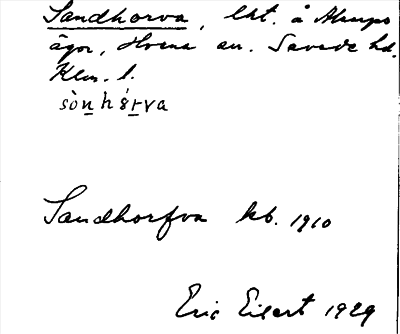 Sandhorva, lht. å Alnarps
ägor, Hvena sn. Sevede hd.
Klm. l.
sòn̲hǿr̲va
Sandhorfva kb. 1910
Eric Eisert 1929